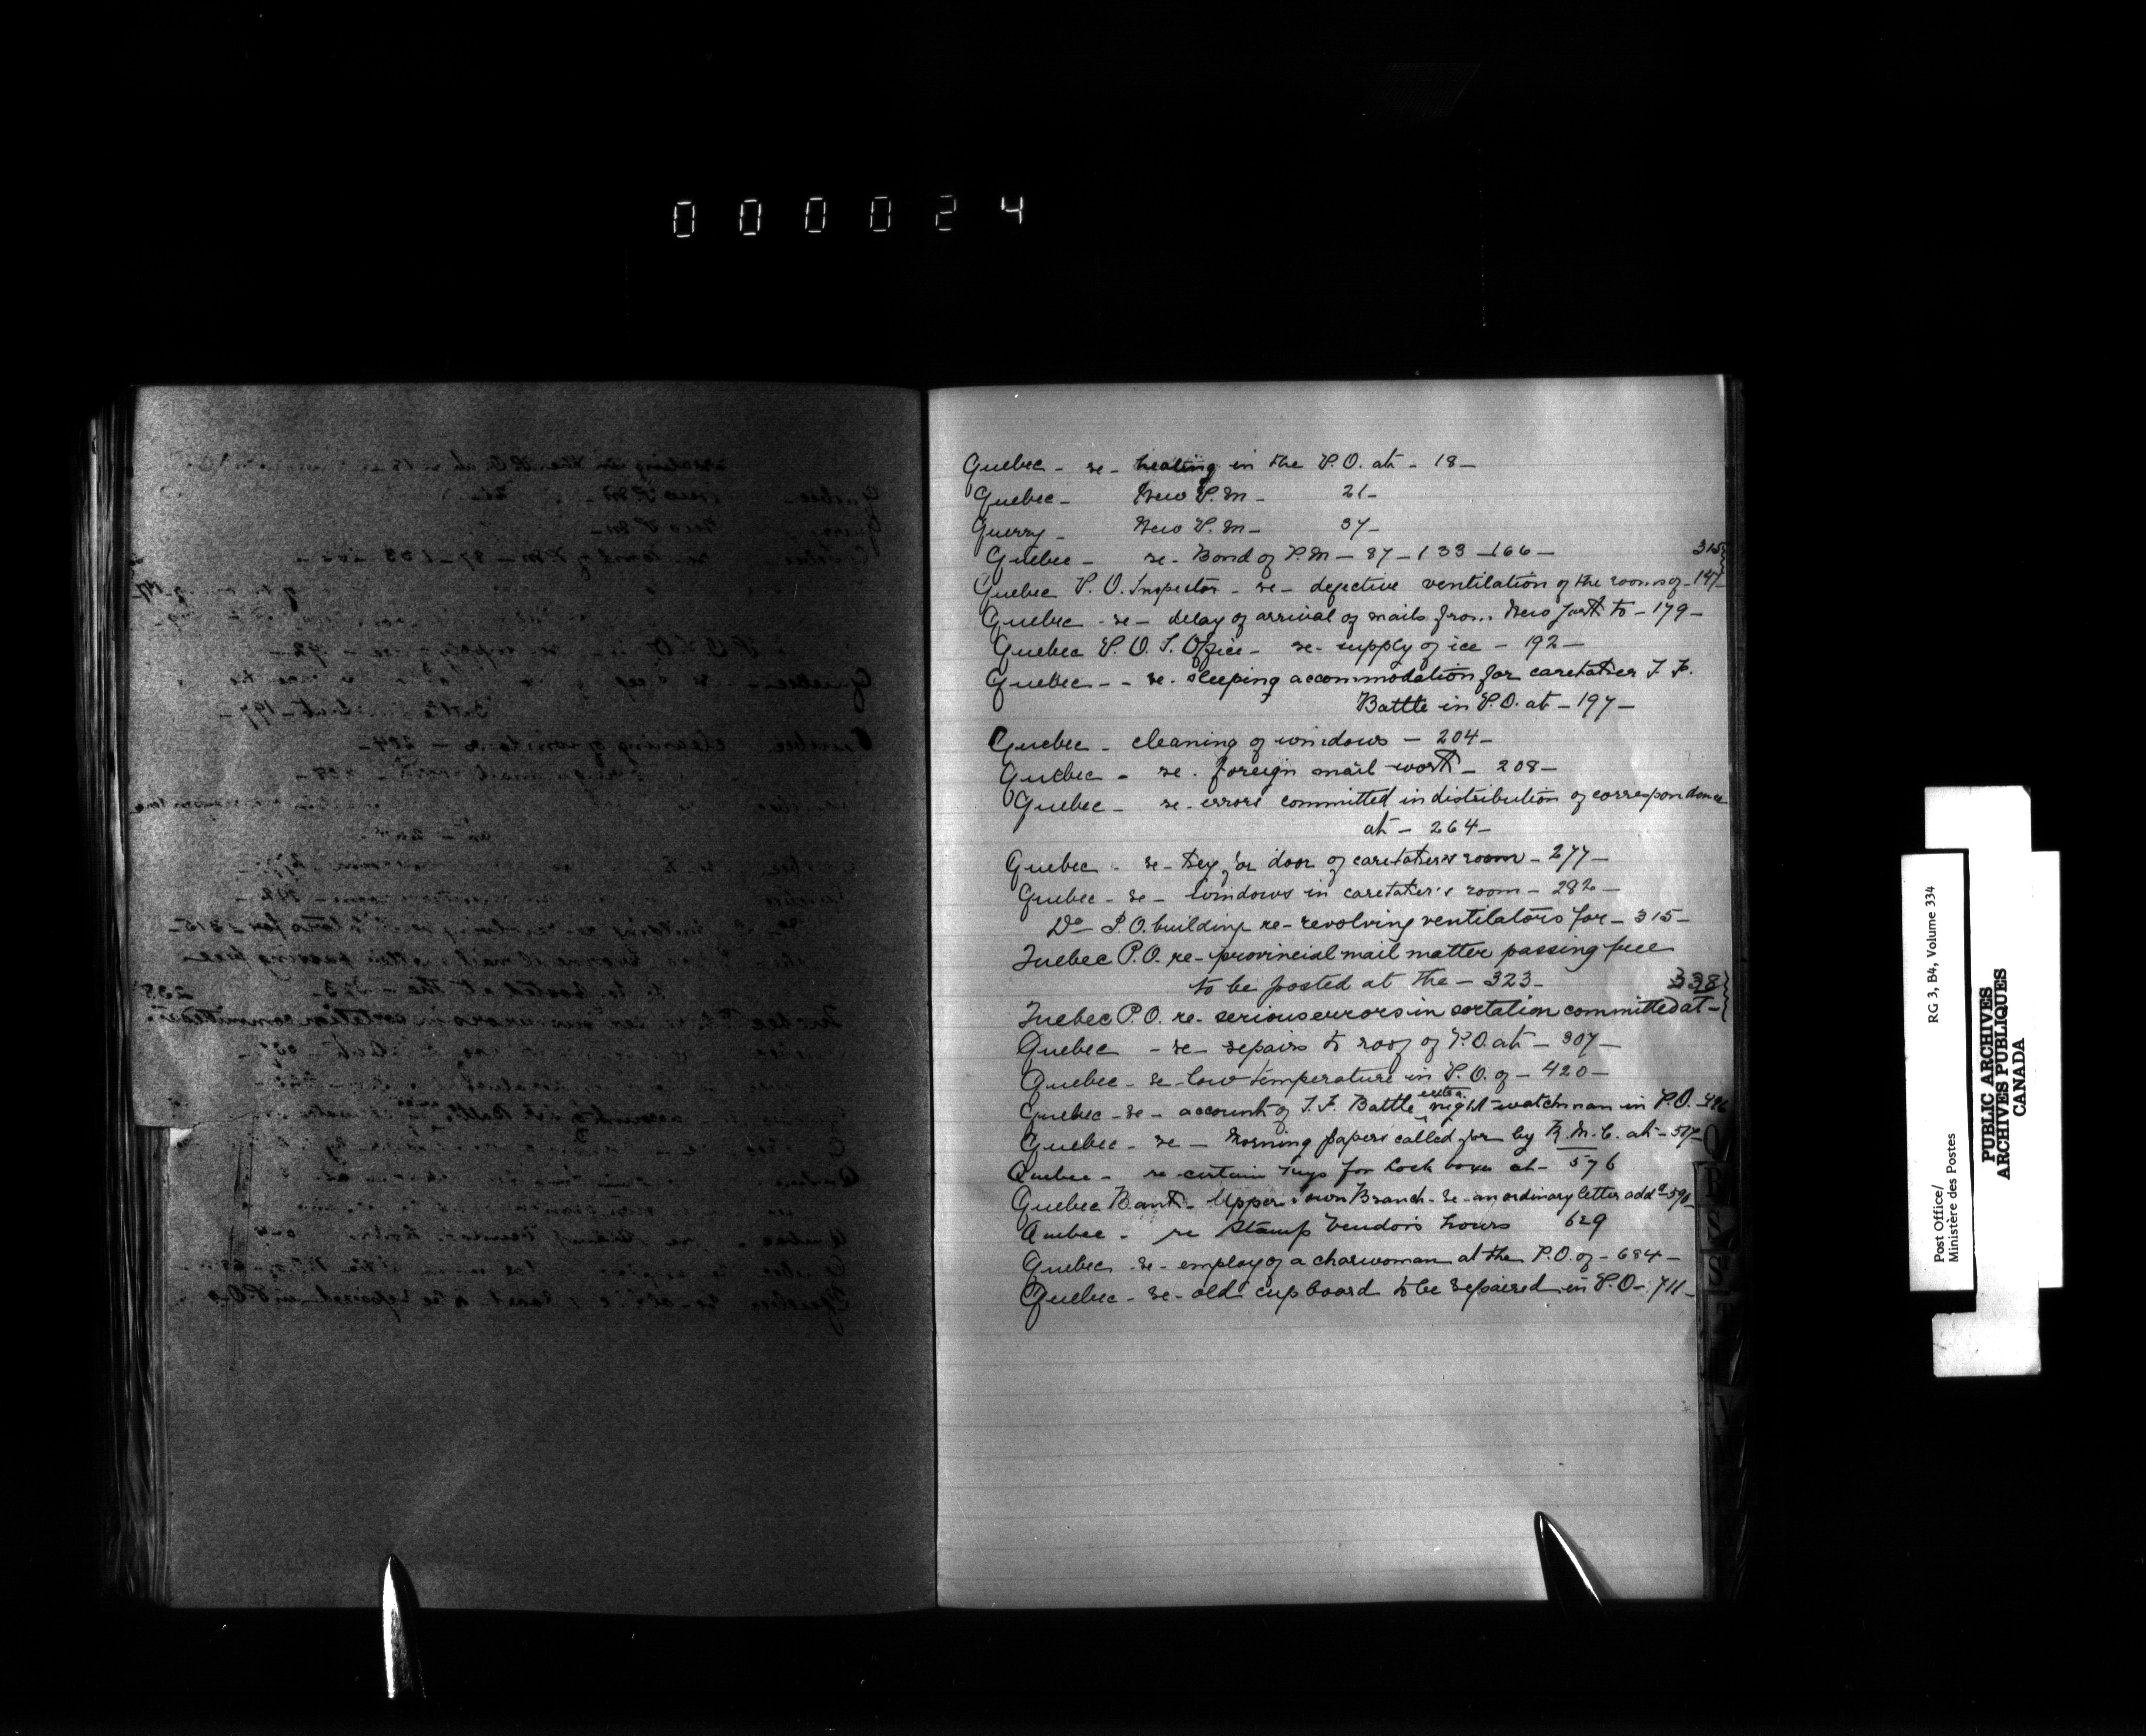 000024
Quebec - re - heating in the P.O. at - 18 -
Quebec - New P.M - 21 -
Querry - New P.M - 37 -
Quebec - re - Bond of P.M - 87 - 133 - 166 -
315
Quebec P.O. Inspector - re - defective ventilation of the rooms of - 147
Quebec - re - delay of arrival of mails from New York to - 179 -
Quebec P.O. I. Office - re - supply of ice - 192 -
Quebec - - re - sleeping accommodation for caretaker J. F.
Battle in P.O. at - 197 -
Quebec - cleaning of windows - 204 -
Quebec - re. foreign mail work - 208 -
Quebec - re - errors committed in distribution of correspondence
at - 264 -
Quebec - re - key for door of caretaker's room - 277 -
Quebec - re - windows in caretaker's room - 282 -
Do - P.O. building re - revolving ventilators for - 315 -
Quebec P.O. re - provincial mail matter passing free
to be posted at the - 323 -
338
Quebec P.O. re - serious errors in sortation committed at -
Quebec - re - repairs to roof of P.O. at - 307 -
Quebec - re - low temperature in P.O. of - 420 -
Quebec - re - account of J. F. Battle extra night-watchman in P.O. -
Quebec - re - morning papers called for by R. M. C. at -
Quebec - re certain keys for Lock boxes at - 576
Quebec Bank - Upper Town Branch - re - an ordinary letter addd -
Quebec - re Stamp Vendors hours 629
Quebec - re - employ of a charwoman at the P.O. of - 684 -
Quebec - re - old cupboard to be repaired in P.O - 711 -
Q
R
S
T
V
Post Office/ RG 3, B4, Volume 334
Ministère des Postes
PUBLIC ARCHIVES
ARCHIVES PUBLIQUES
CANADA